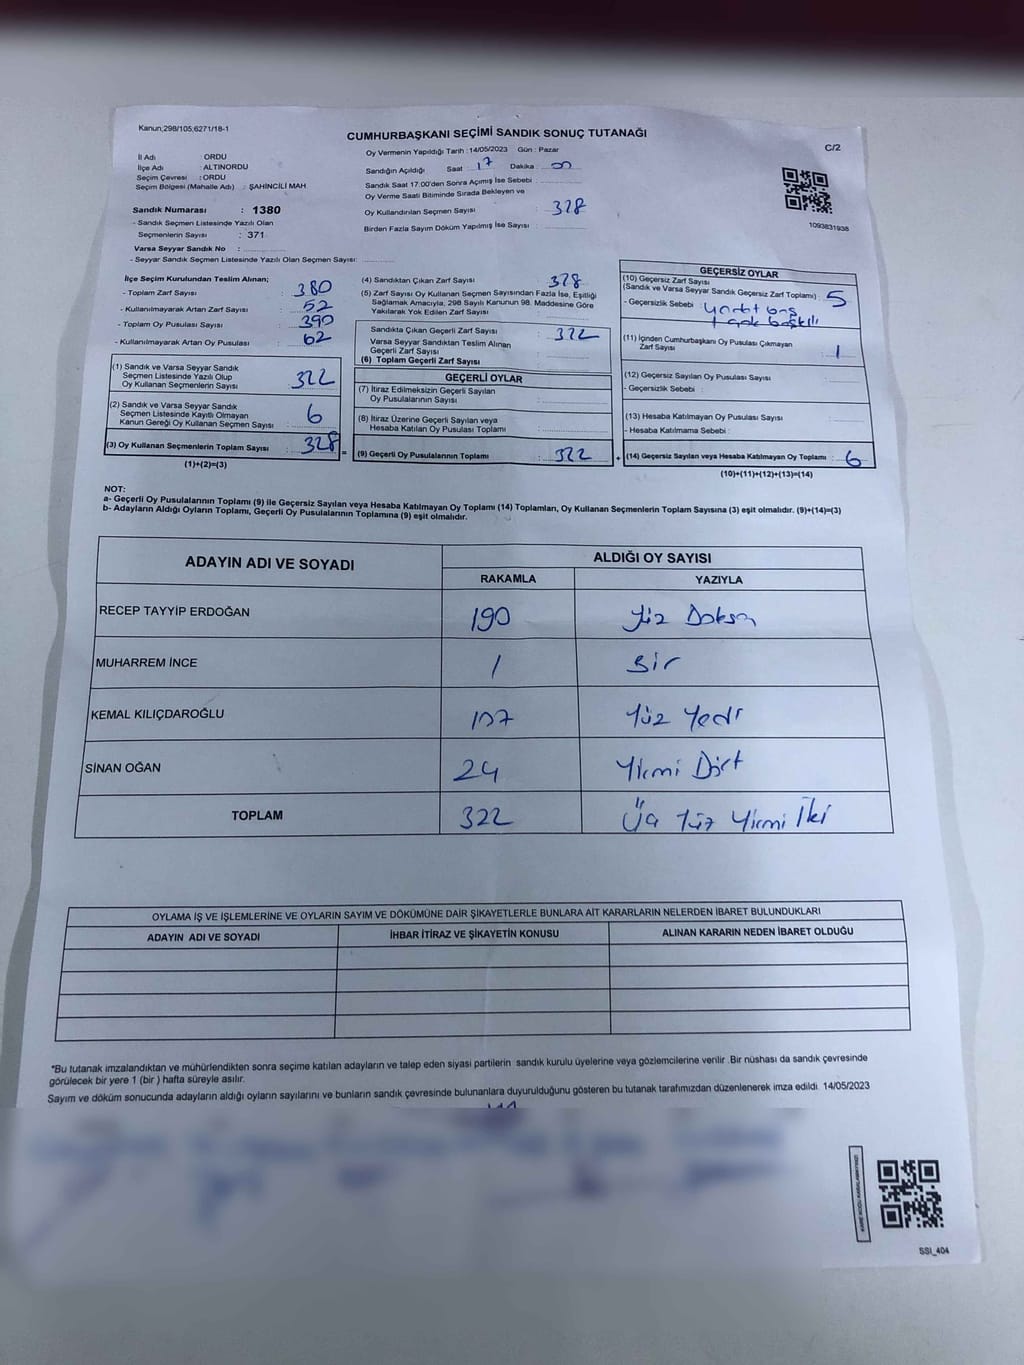 Kanun;298/105;6271/18-1
CUMHURBAŞKANI SEÇİMİ SANDIK SONUÇ TUTANAĞI
C/2
İl Adı : ORDU
İlçe Adı : ALTINORDU
Seçim Çevresi : ORDU
Seçim Bölgesi (Mahalle Adı) : ŞAHİNCİLİ MAH.
Sandık Numarası : 1380
- Sandık Seçmen Listesinde Yazılı Olan
Seçmenlerin Sayısı : 371
Varsa Seyyar Sandık No :
- Seyyar Sandık Seçmen Listesinde Yazılı Olan Seçmen Sayısı:
Oy Vermenin Yapıldığı Tarih : 14/05/2023 Gün : Pazar
Sandığın Açıldığı Saat : 17 Dakika : 00
Sandık Saat 17.00'den Sonra Açımış İse Sebebi :
Oy Verme Saati Bitiminde Sırada Bekleyen ve
Oy Kullandırılan Seçmen Sayısı : 328
Birden Fazla Sayım Döküm Yapılmış İse Sayısı :
1093831938
İlçe Seçim Kurulundan Teslim Alınan;
- Toplam Zarf Sayısı : 380
- Kullanılmayarak Artan Zarf Sayısı : 52
- Toplam Oy Pusulası Sayısı : 390
- Kullanılmayarak Artan Oy Pusulası : 62
(1) Sandık ve Varsa Seyyar Sandık
Seçmen Listesinde Yazılı Olup
Oy Kullanan Seçmenlerin Sayısı : 322
(2) Sandık ve Varsa Seyyar Sandık
Seçmen Listesinde Kayıtlı Olmayan
Kanun Gereği Oy Kullanan Seçmen Sayısı : 6
(3) Oy Kullanan Seçmenlerin Toplam Sayısı : 328
(1)+(2)=(3)
(4) Sandıktan Çıkan Zarf Sayısı : 328
(5) Zarf Sayısı Oy Kullanan Seçmen Sayısından Fazla İse, Eşitliği
Sağlamak Amacıyla, 298 Sayılı Kanunun 98. Maddesine Göre
Yakılarak Yok Edilen Zarf Sayısı :
Sandıkta Çıkan Geçerli Zarf Sayısı : 322
Varsa Seyyar Sandıktan Teslim Alınan
Geçerli Zarf Sayısı :
(6) Toplam Geçerli Zarf Sayısı
GEÇERLİ OYLAR
(7) İtiraz Edilmeksizin Geçerli Sayılan
Oy Pusulalarının Sayısı :
(8) İtiraz Üzerine Geçerli Sayılan veya
Hesaba Katılan Oy Pusulası Toplamı :
= (9) Geçerli Oy Pusulalarının Toplamı : 322 +
GEÇERSİZ OYLAR
(10) Geçersiz Zarf Sayısı
(Sandık ve Varsa Seyyar Sandık Geçersiz Zarf Toplamı) : 5
- Geçersizlik Sebebi : 4
1 çok baskılı
(11) İçinden Cumhurbaşkanı Oy Pusulası Çıkmayan
Zarf Sayısı : 1
(12) Geçersiz Sayılan Oy Pusulası Sayısı :
- Geçersizlik Sebebi :
(13) Hesaba Katılmayan Oy Pusulası Sayısı :
- Hesaba Katılmama Sebebi :
(14) Geçersiz Sayılan veya Hesaba Katılmayan Oy Toplamı : 6
(10)+(11)+(12)+(13)=(14)
NOT:
a- Geçerli Oy Pusulalarının Toplamı (9) ile Geçersiz Sayılan veya Hesaba Katılmayan Oy Toplamı (14) Toplamları, Oy Kullanan Seçmenlerin Toplam Sayısına (3) eşit olmalıdır. (9)+(14)=(3)
b- Adayların Aldığı Oyların Toplamı, Geçerli Oy Pusulalarının Toplamına (9) eşit olmalıdır.
ADAYIN ADI VE SOYADI ALDIĞI OY SAYISI
RAKAMLA YAZIYLA
RECEP TAYYİP ERDOĞAN 190 Yüz Doksan
MUHARREM İNCE 1 Bir
KEMAL KILIÇDAROĞLU 107 Yüz Yedi
SİNAN OĞAN 24 Yirmi Dört
TOPLAM 322 Üç Yüz Yirmi İki
OYLAMA İŞ VE İŞLEMLERİNE VE OYLARIN SAYIM VE DÖKÜMÜNE DAİR ŞİKAYETLERLE BUNLARA AİT KARARLARIN NELERDEN İBARET BULUNDUKLARI
ADAYIN ADI VE SOYADI İHBAR İTİRAZ VE ŞİKAYETİN KONUSU ALINAN KARARIN NEDEN İBARET OLDUĞU
*Bu tutanak imzalandıktan ve mühürlendikten sonra seçime katılan adayların ve talep eden siyasi partilerin sandık kurulu üyelerine veya gözlemcilerine verilir .Bir nüshası da sandık çevresinde
görülecek bir yere 1 (bir ) hafta süreyle asılır.
Sayım ve döküm sonucunda adayların aldığı oyların sayılarını ve bunların sandık çevresinde bulunanlara duyurulduğunu gösteren bu tutanak tarafımızdan düzenlenerek imza edildi. 14/05/2023
SSI_404